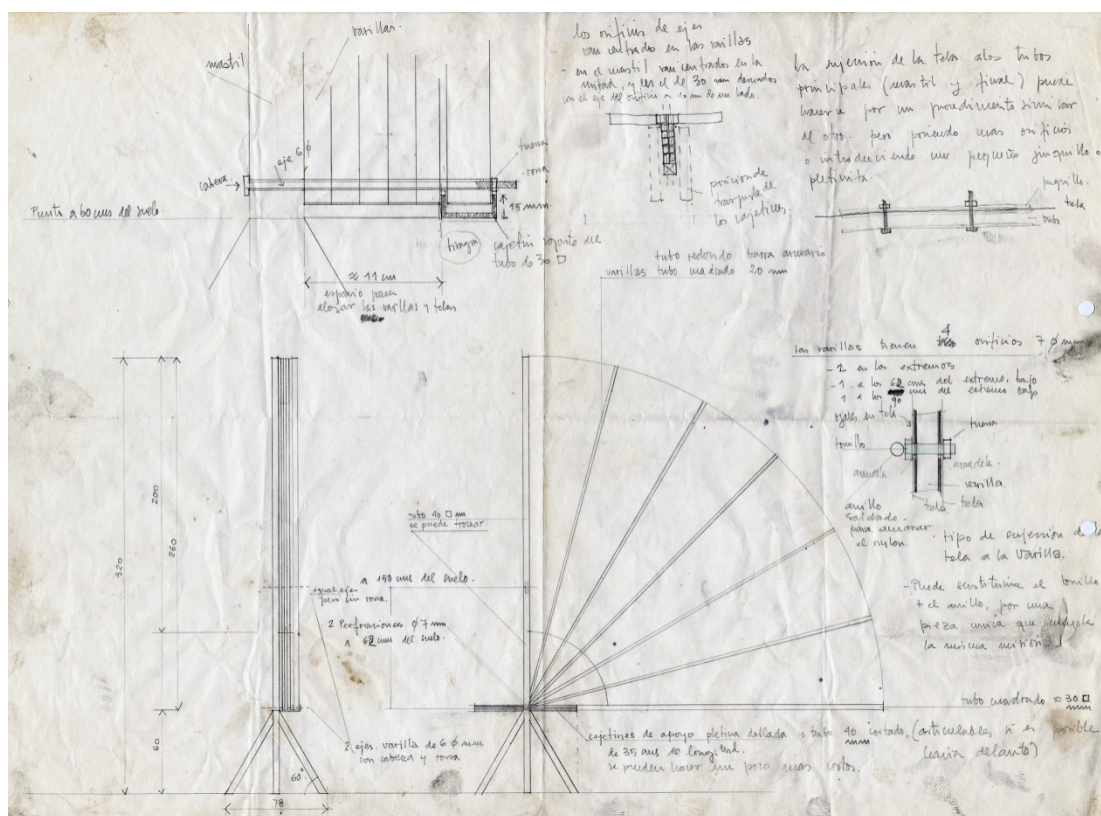 mastil
varillas.
cabeza
eje 6 ϕ
tuerca
rosca
15 mm.
Punto a 60 cms del suelo.
cajetin soporte del
tubo de 30 □
≈ 11 cm
espacio para
alojar las varillas y telas
los orificios de ejes
van centrados en las varillas
- en el mastil van centrados en la
mitad, y en el de 30 mm
posicion de
los cajetines.
la sujeción de la tela a los tubos
principales (mastil y final) puede
hacerse por un procedimiento similar
al otro. pero poniendo mas orificios
o introduciendo un pequeño junquillo o
pletinita.
junquillo
tela
tubo
tubo redondo barra armario
varillas tubo cuadrado 20 mm
las varillas tienen 4 orificios 7 ϕ mm
- 2 en los extremos
- 1 a los 62 cms del extremo bajo
1 a los 90 cms del extremo bajo
ojales en tela
tornillo
tuerca
arandela
arandela
varilla.
tela
tela
anillo
soldado
para amarrar
el nylon.
· tipo de sujeción de la
tela a la varilla.
- Puede sustituirse el tornillo
+ el anillo, por una
pieza unica que
la misma
320
200
260
60
78
60°
tubo 40 □ mm
se puede trocear
a 150 cms del suelo.
igual ejes
pero sin rosca.
2 Perforaciones ϕ 7 mm
a 62 cms del suelo.
2 ejes. varilla de 6 ϕ mm
con cabeza y rosca
tubo cuadrado ≈ 30 □
mm
cajetines de apoyo pletina doblada o tubo 40 cortado, (articulables si es posible
mm
hacia delante)
de 35 cms de longitud.
se pueden hacer un poco mas cortos.